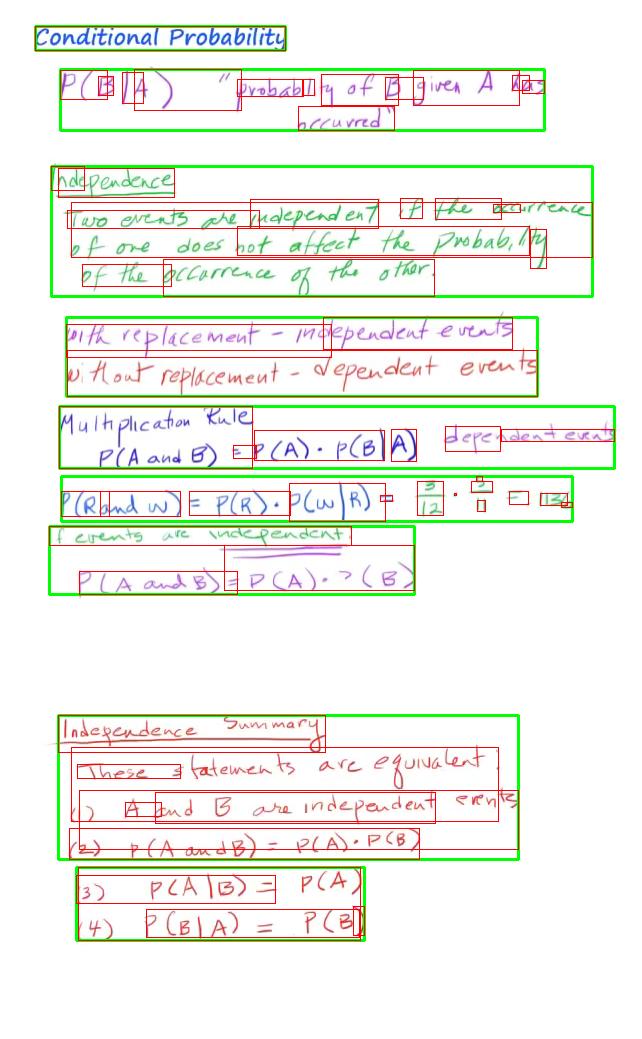 Conditional Probability
P(B|A) "probability of B given A has
occurred"
Independence
Two events are independent if the occurrence
of one does not affect the probability
of the occurrence of the other.
with replacement - independent events
without replacement - dependent events
Multiplication Rule
P(A and B) = P(A) · P(B|A) dependent events
P(R and W) = P(R) · P(W|R) = 3/12 ·
If events are independent.
P(A and B) = P(A) · P(B)
Independence Summary
These statements are equivalent.
(1) A and B are independent events
(2) P(A and B) = P(A) · P(B)
(3) P(A|B) = P(A)
(4) P(B|A) = P(B)